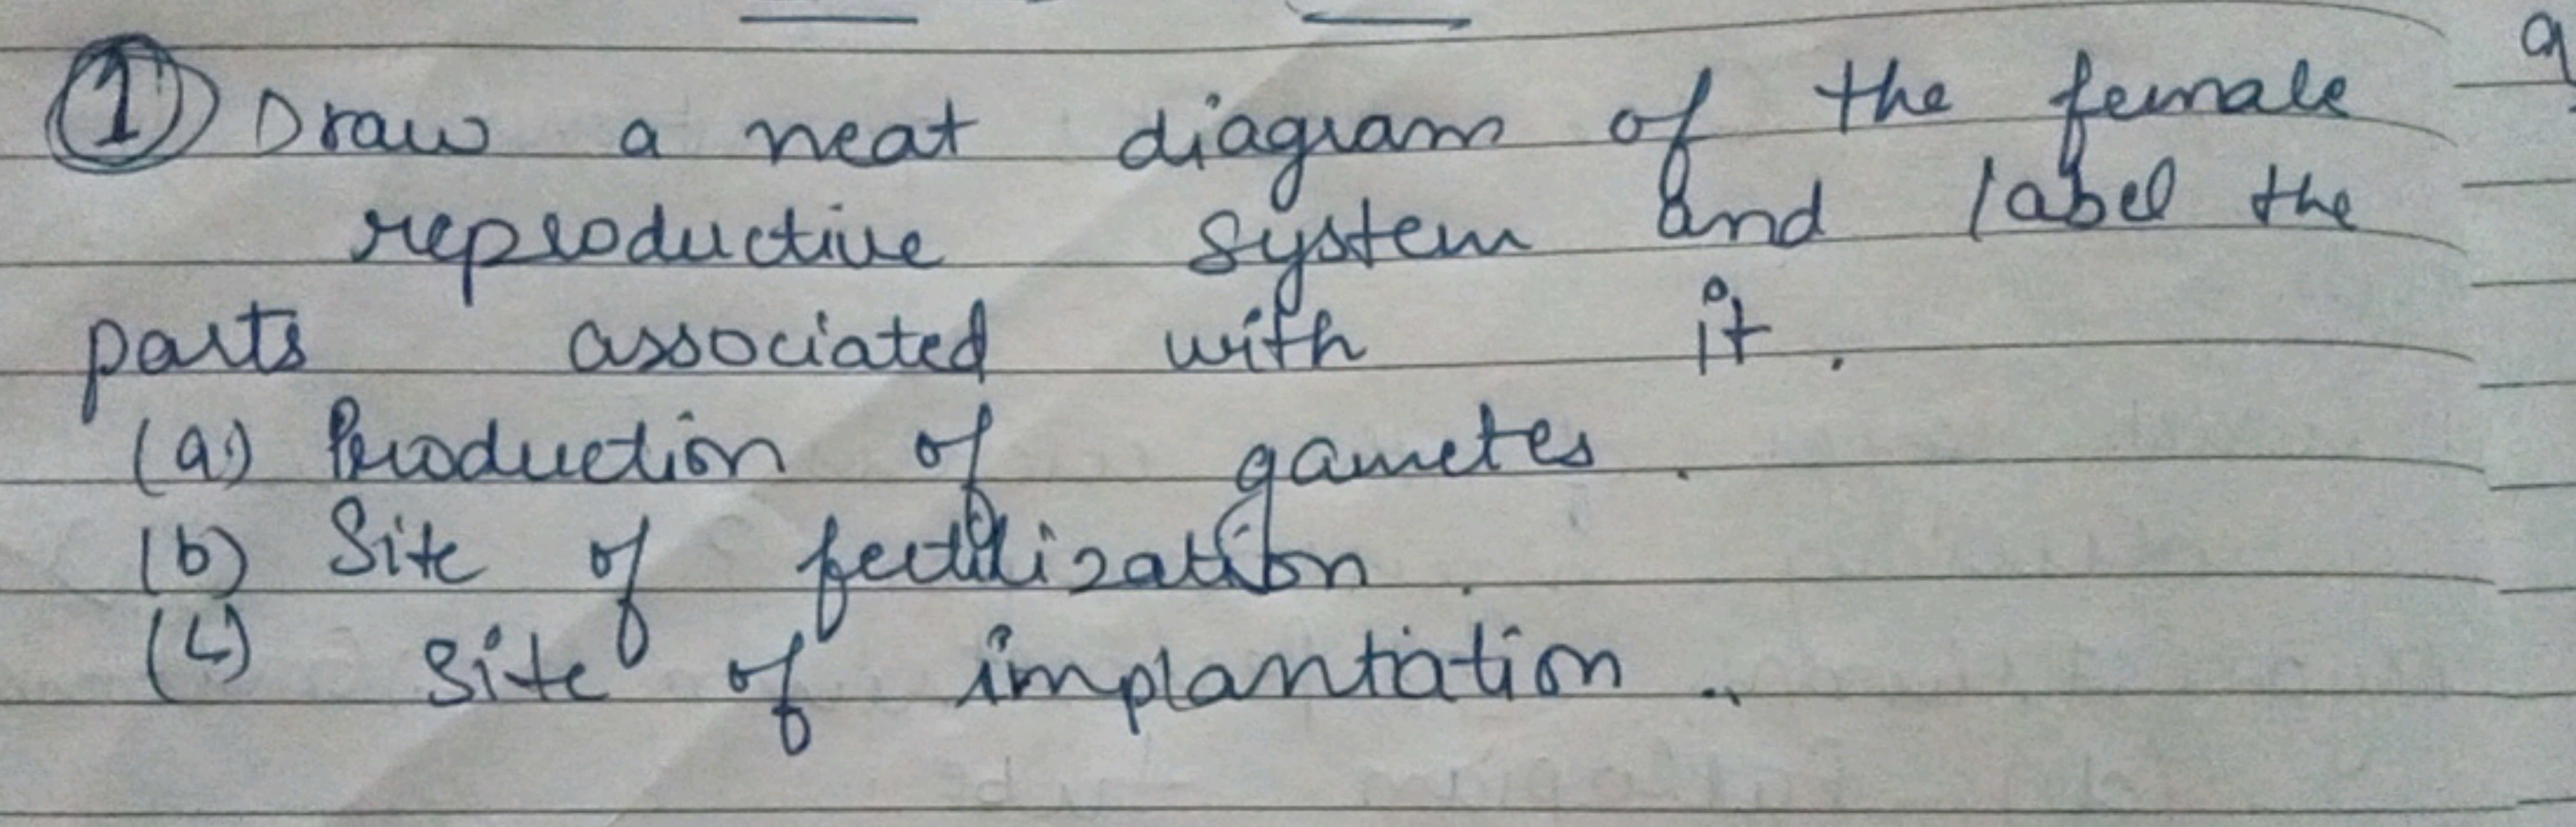 ① Draw a neat diagram of the female
reproductive system and label the
parts associated with it.
(a) Production of gametes.
(b) Site of fertilization.
(c) Site of implantation..